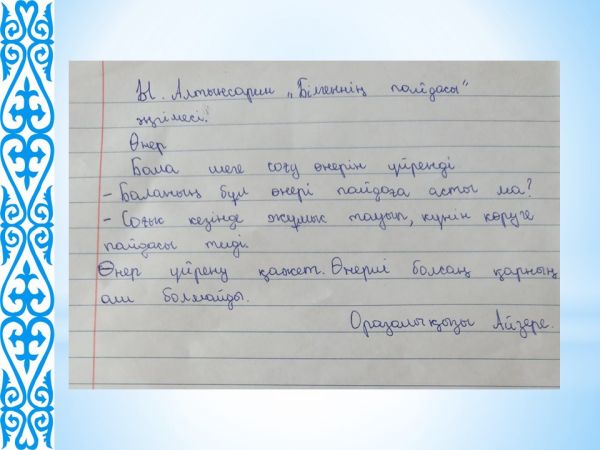 Ы. Алтынсарин „Білгеннің пайдасы“
әңгімесі.
Өнер
Бала шеге соғу өнерін үйренді
- Баланың бұл өнері пайдаға асты ма?
- Соғыс кезінде жұмыс тауып, күнін көруге
пайдасы тиді.
Өнер үйрену қажет. Өнерлі болсаң қарның
аш болмайды.
Оразалықызы Айзере.